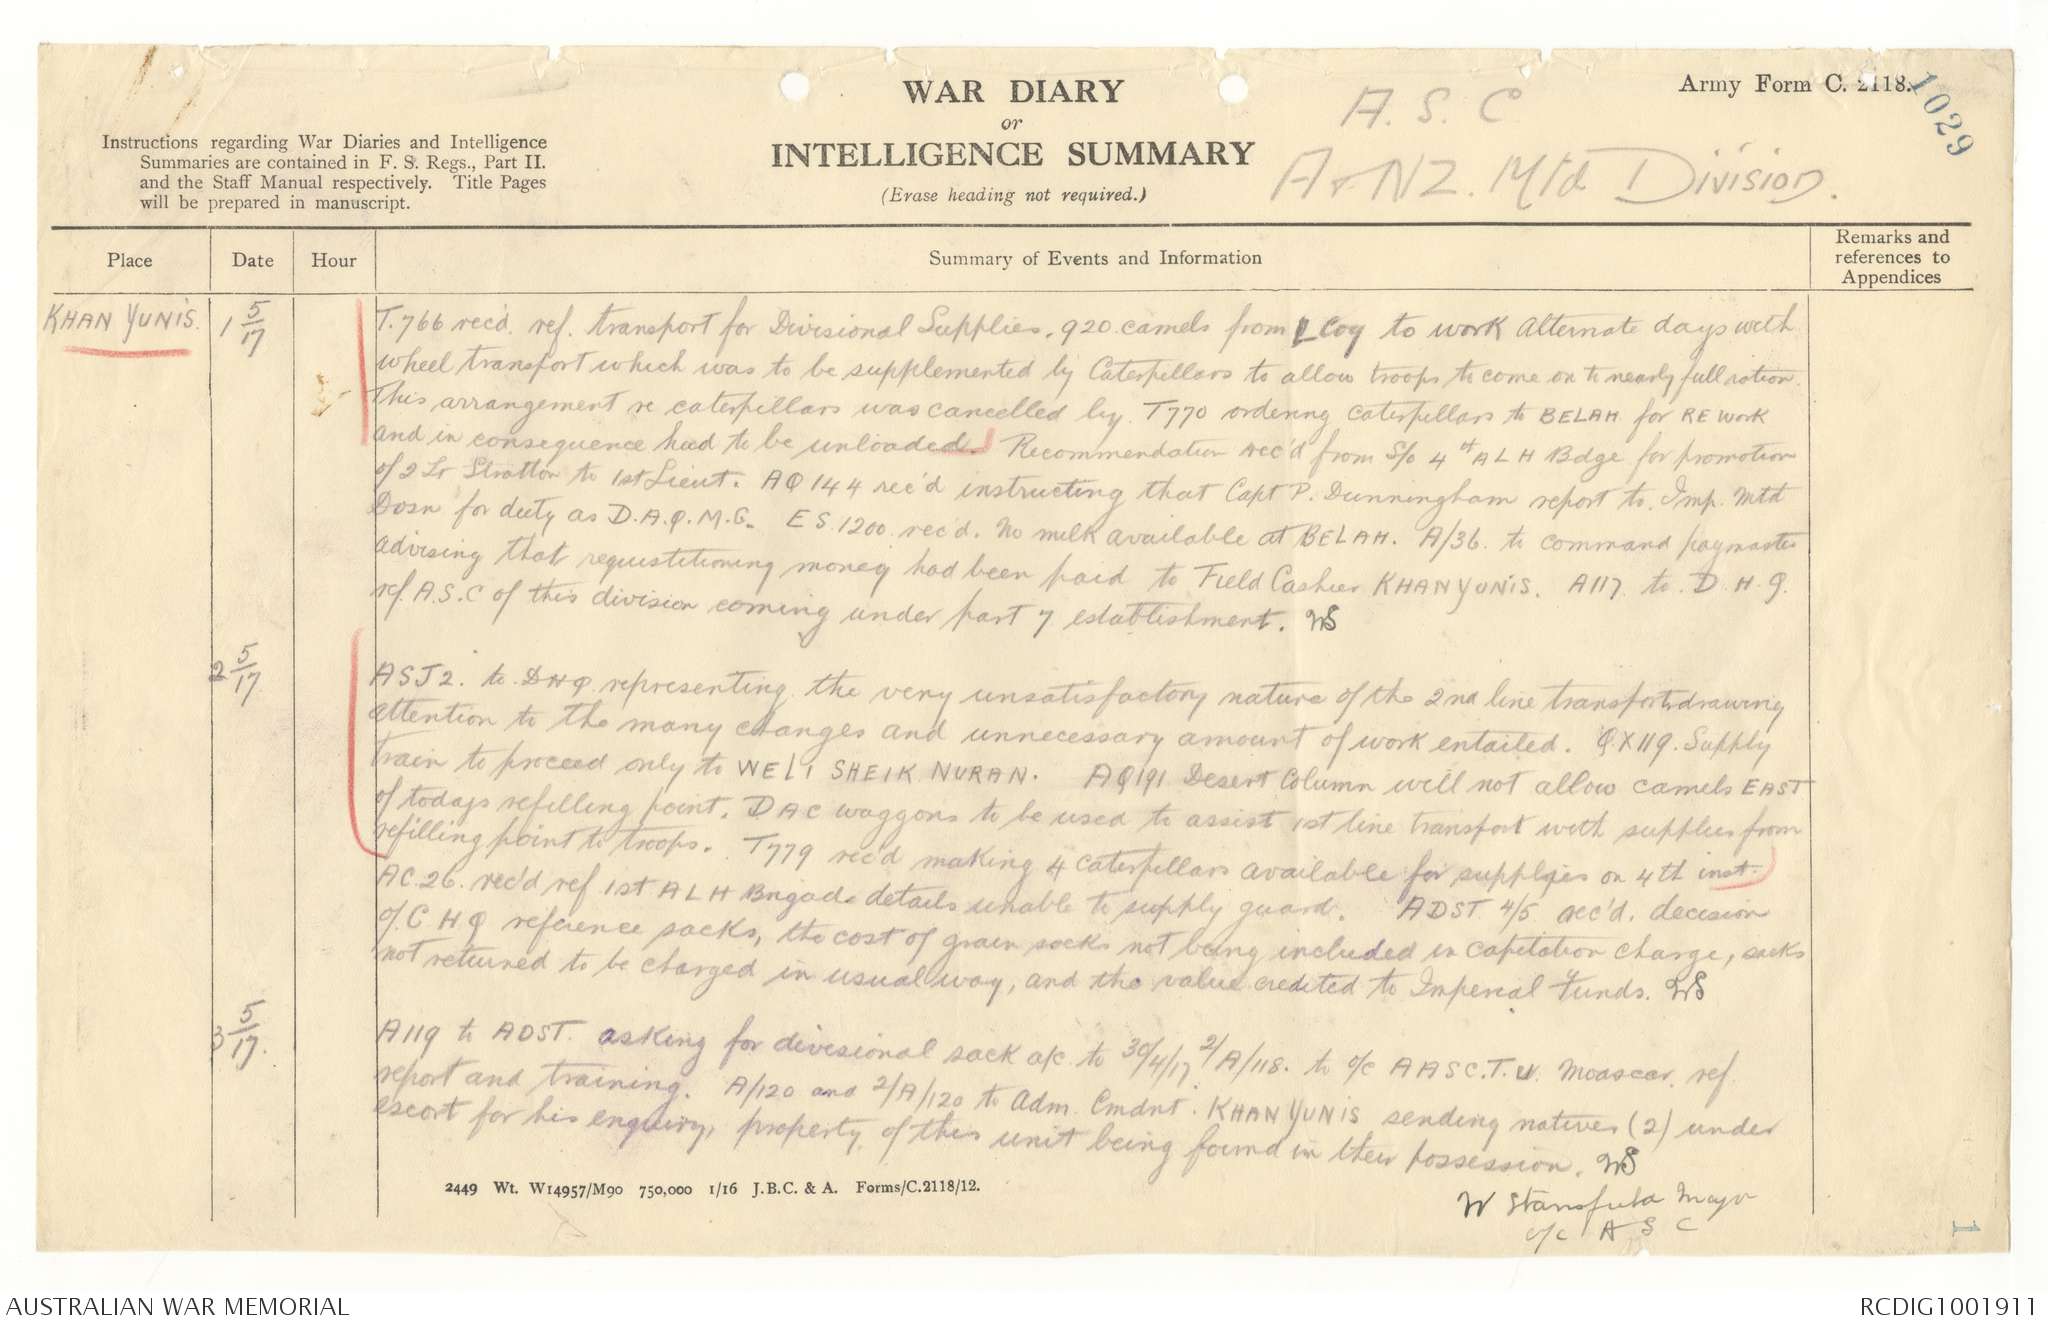 WAR DIARY
or
INTELLIGENCE SUMMARY
(Erase heading not required.)
Army Form C. 2118.
1029
A. S. C
A & NZ. Mtd Division.
Instructions regarding War Diaries and Intelligence
Summaries are contained in F. S. Regs., Part II.
and the Staff Manual respectively. Title Pages
will be prepared in manuscript.
Place Date Hour Summary of Events and Information Remarks and references to Appendices
KHAN YUNIS. 1 5/17 T.766 rec'd. ref. transport for Divisional Supplies. 920 camels from L Coy to work alternate days with
wheel transport which was to be supplemented by Caterpillars to allow troops to come on to nearly full ration.
This arrangement re caterpillars was cancelled by T770 ordering caterpillars to BELAH for RE work
and in consequence had to be unloaded. Recommendation rec'd from S/o 4th ALH Bdge for promotion
of 2 Lr Stratton to 1st Lieut. AQ 144 rec'd instructing that Capt P. Dunningham report to Imp. Mtd
Dosn for duty as D.A.Q.M.G. ES.1200 rec'd. No milk available at BELAH. A/36. to command paymaster
advising that requistitioning money had been paid to Field Cashier KHAN YUNIS. A117. to D.H.Q.
ref. A.S.C of this division coming under part 7 establishment. WS
2 5/17 ASJ2. to DHQ representing the very unsatisfactory nature of the 2nd line transport, drawing
attention to the many changes and unnecessary amount of work entailed. QX119. Supply
train to proceed only to WELI SHEIK NURAN. AQ191 Desert Column will not allow camels EAST
of todays refilling point. DAC waggons to be used to assist 1st line transport with supplies from
refilling point to troops. T779 rec'd making 4 caterpillars available for supplies on 4th inst.
AC.26. rec'd ref 1st ALH Brigade details unable to supply guard. ADST 4/5 rec'd. decision
of C H Q reference sacks, the cost of grain sacks not being included in capitation charge, sacks
not returned to be charged in usual way, and the value credited to Imperial Funds. WS
3 5/17. A119 to ADST. asking for divisional sack a/c to 30/4/17. 2/A/118. to o/c AASC.T.U. Moascar. ref
report and training. A/120 and 2/A/120 to Adm. Cmdnt. KHAN YUNIS sending natives (2) under
escort for his enquiry, property of this unit being found in their possession. WS
W Stansfield Major
o/c A S C
2449 Wt. W14957/M90 750,000 1/16 J.B.C. & A. Forms/C.2118/12.
1
AUSTRALIAN WAR MEMORIAL
RCDIG1001911